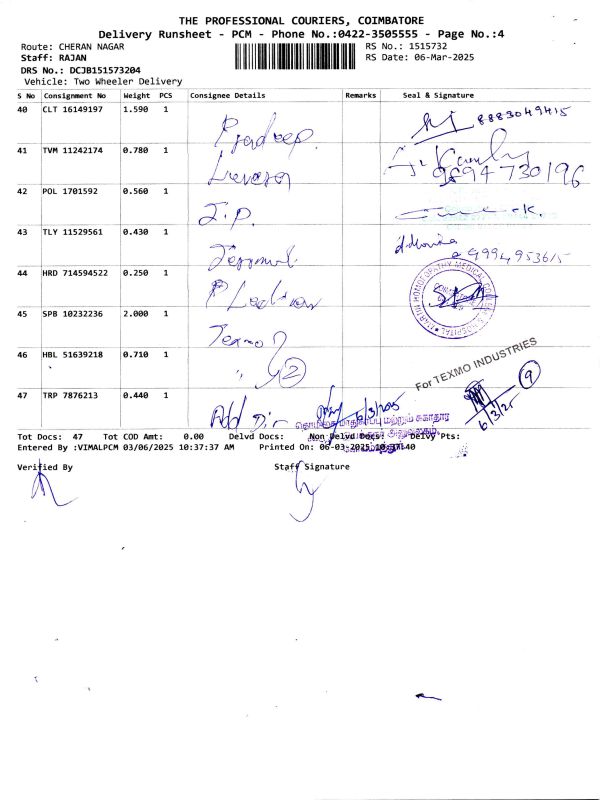 THE PROFESSIONAL COURIERS, COIMBATORE
Delivery Runsheet - PCM - Phone No.:0422-3505555 - Page No.:4
Route: CHERAN NAGAR
RS No.: 1515732
Staff: RAJAN
RS Date: 06-Mar-2025
DRS No.: DCJB151573204
Vehicle: Two Wheeler Delivery
S No Consignment No Weight PCS Consignee Details Remarks Seal & Signature
40 CLT 16149197 1.590 1 Pradeep 8883049415
41 TVM 11242174 0.780 1 9894730196
42 POL 1701592 0.560 1 J.P.
43 TLY 11529561 0.430 1 9994953615
44 HRD 714594522 0.250 1
45 SPB 10232236 2.000 1 Texmo
46 HBL 51639218 0.710 1 " 2
For TEXMO INDUSTRIES
9
6/3/25
47 TRP 7876213 0.440 1 Add Dir 6/3/2025
Tot Docs: 47 Tot COD Amt: 0.00 Delvd Docs: Non Delvd Docs: Delvy Pts:
Entered By :VIMALPCM 03/06/2025 10:37:37 AM Printed On: 06-03-2025 10:37:40
Verified By Staff Signature